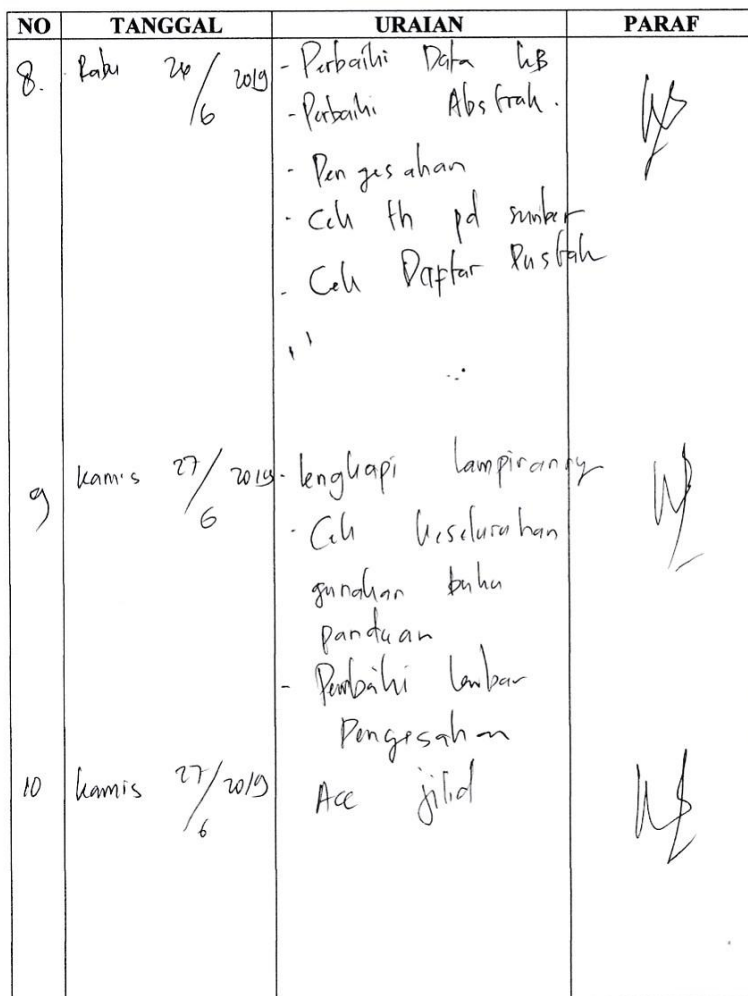 NO TANGGAL URAIAN PARAF
8. Rabu 26/6 2019 - Perbaiki Data KB
- Perbaiki Abstrak.
- Pengesahan
- Cek th pd sumber
- Cek Daftar Pustak
9 Kamis 27/6 2019 - lengkapi lampiranny
- Cek keseluruhan
gunakan buku
panduan
- Perbaiki lembar
Pengesahan
10 Kamis 27/6 2019 Acc jilid